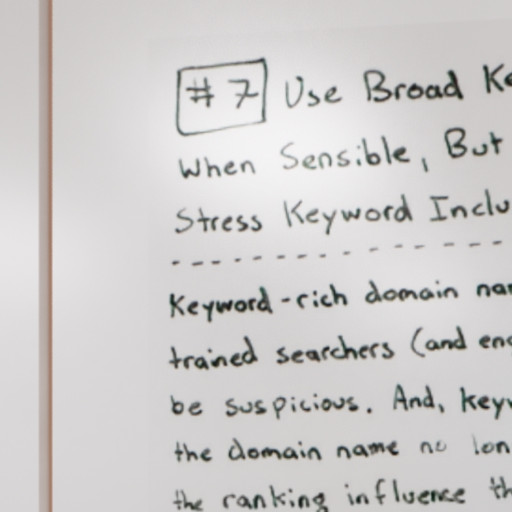 #7 Use Broad
When Sensible, But
Stress Keyword
Keyword-rich domain
trained searchers (and
be suspicious. And,
the domain name no
the ranking influence